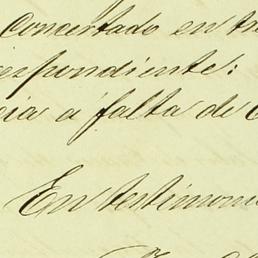 Concertado entr
espondiente:
cia a falta de
En testimoni